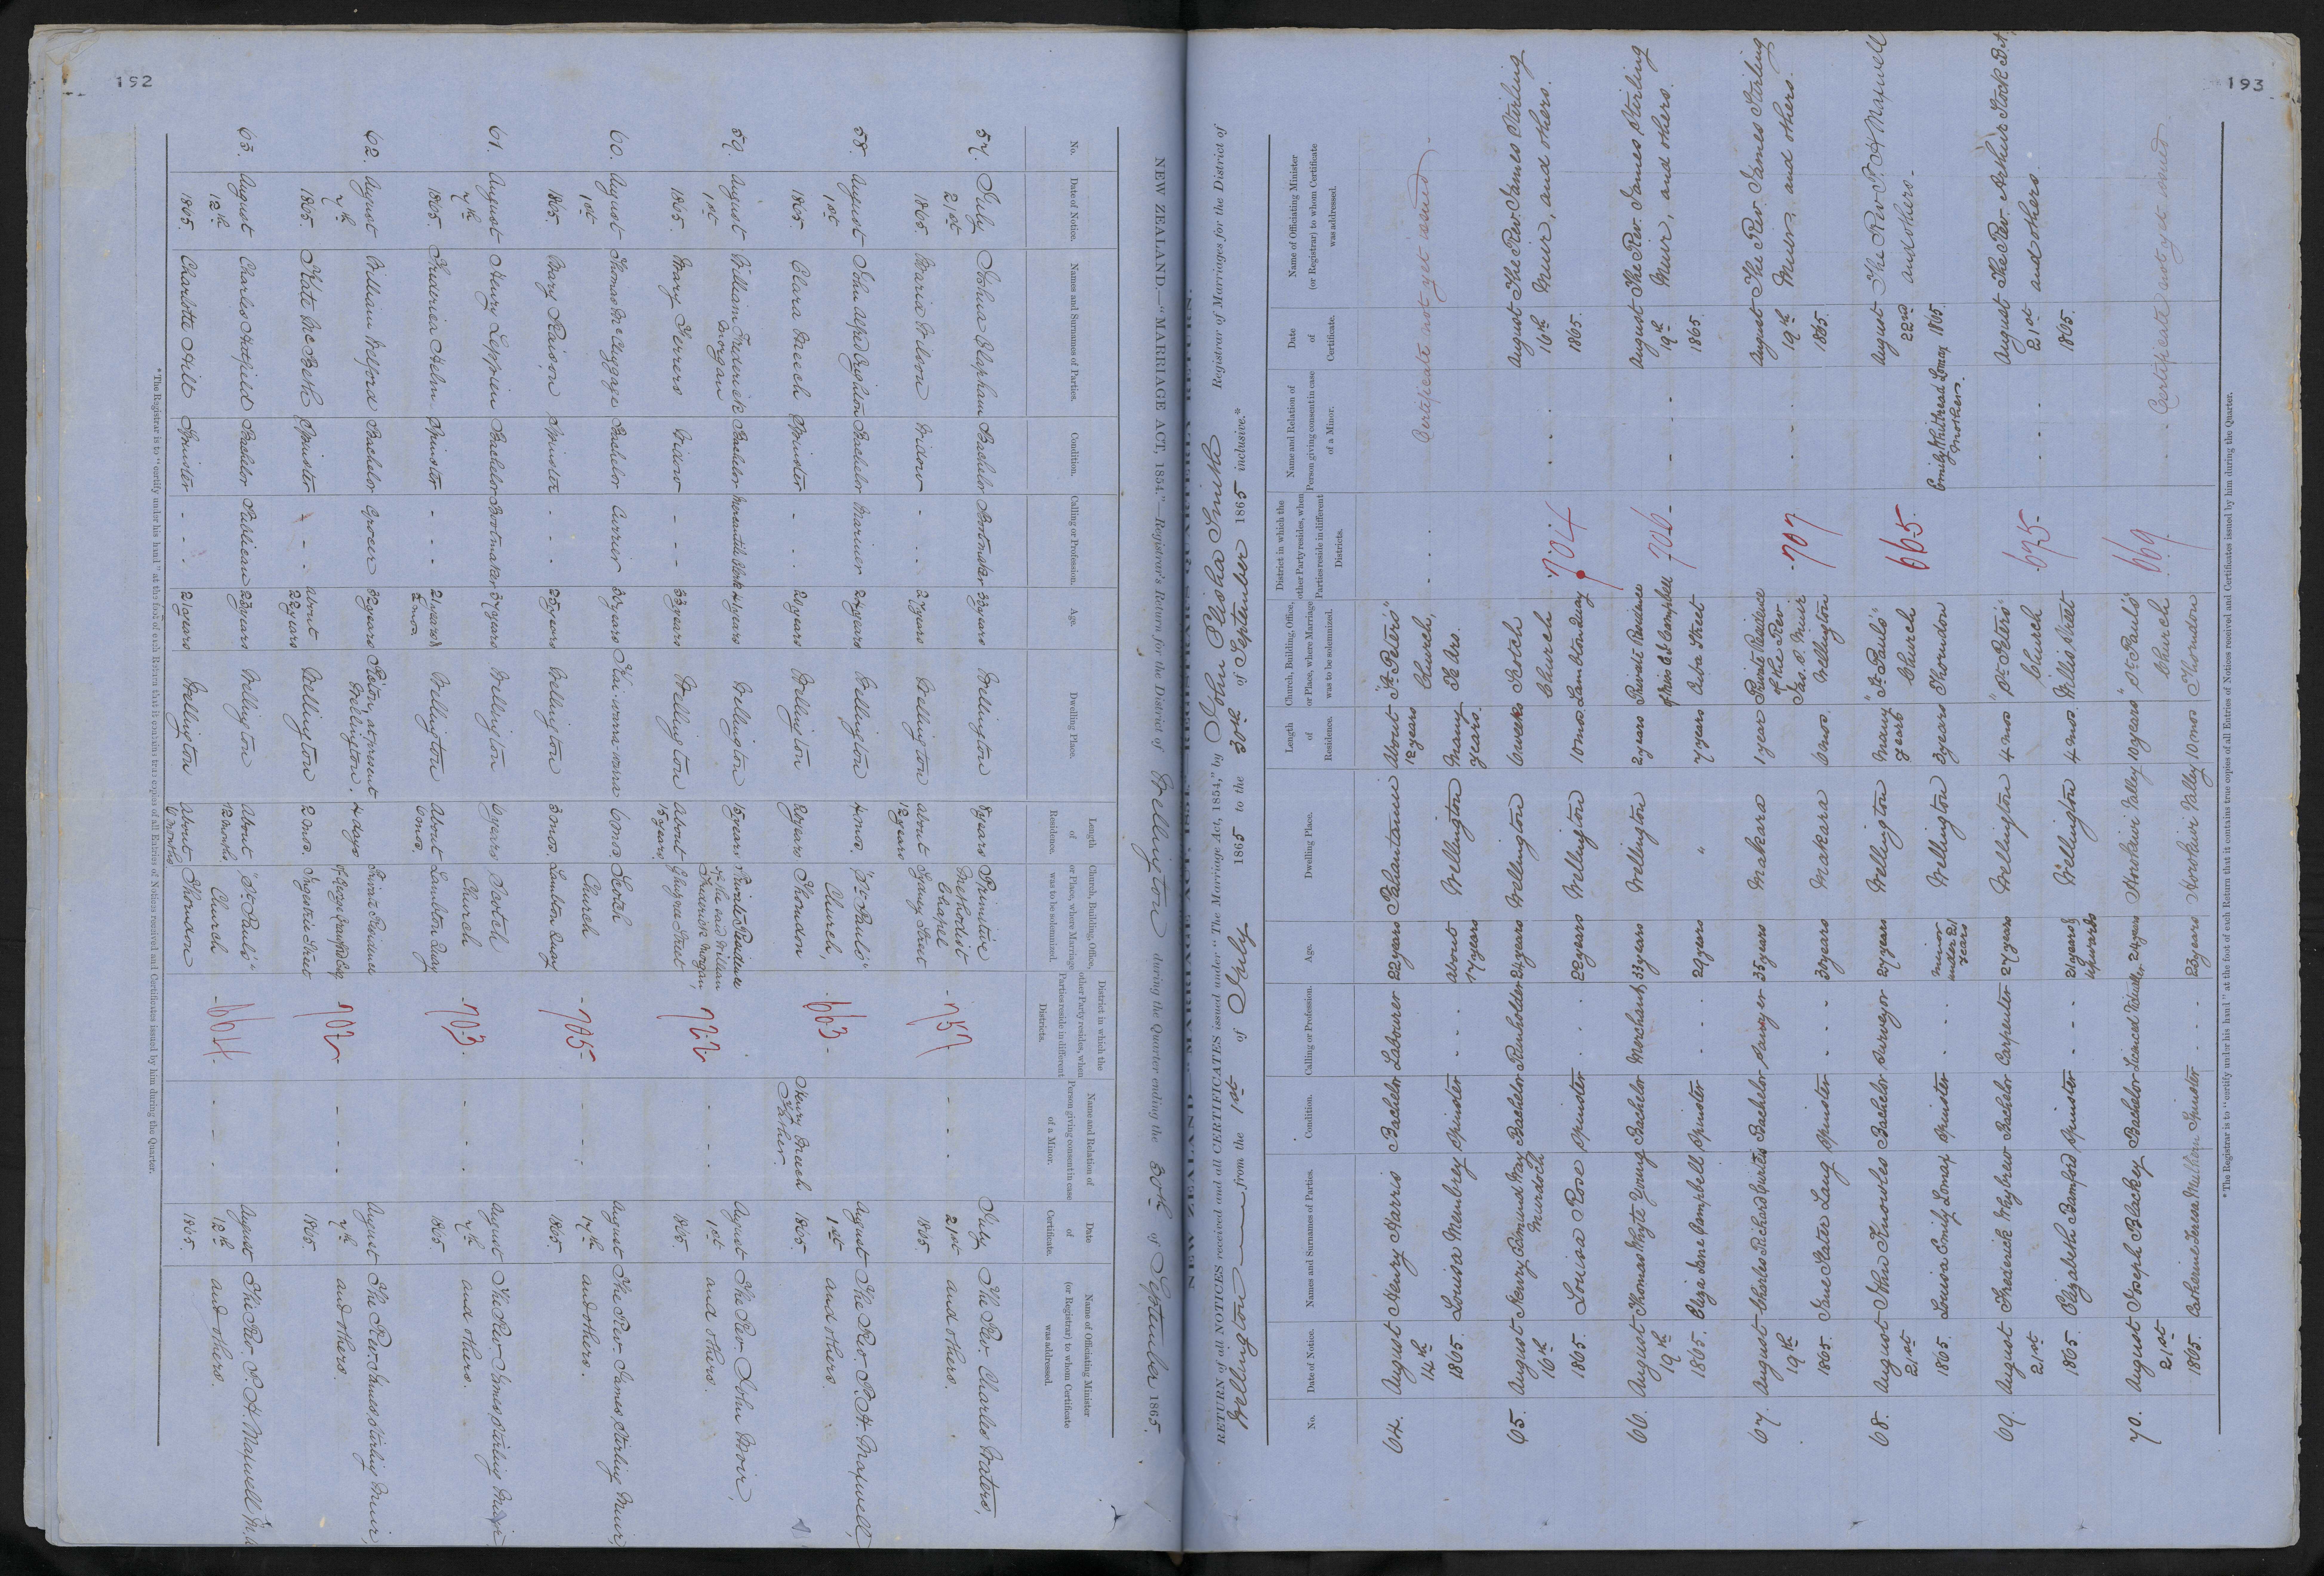 192
NEW ZEALAND.—"MARRIAGE ACT, 1854."—Registrar's Return for the District of Wellington during the Quarter ending the 30th of September 1865.
No. Date of Notice. Names and Surnames of Parties. Condition. Calling or Profession. Age. Dwelling Place. Length of Residence. Church, Building, Office, or Place, where Marriage was to be solemnized. District in which the other Party resides, when Parties reside in different Districts. Name and Relation of Person giving consent in case of a Minor. Date of Certificate. Name of Officiating Minister (or Registrar) to whom Certificate was addressed.
57. July 21st 1865.
Joshua Clapham Bachelor Bootmaker 33 years Wellington 8 years
Maria Wilson Widow - - 27 years Wellington about 12 years
Primitive Methodist Chapel Sydney Street
- 757
July 21st 1865.
The Rev. Charles Waters, and others.
58. August 1st 1865.
John Alfred Brighton Bachelor Mariner 24 years Wellington 4 mos.
Clara Meech Spinster - - 20 years Wellington 20 years
"St. Paul's" Church, Thorndon
663 -
Henry Meech Father
August 1st 1865.
The Rev. P. H. Maxwell, and others.
59. August 1st 1865.
William Frederick Morgan Bachelor Mercantile Clerk 41 years Wellington 15 years
Mary Ferrers Widow - - - 33 years Wellington about 15 years
Private Residence of the said William Frederick Morgan, Ghuznee Street
722
August 1st 1865.
The Rev. John Moir, and others.
60. August 1st 1865.
Thomas McClyggage Bachelor Currier 30 years Kai-warra-warra 6 mos.
Mary Raison Spinster - - - 25 years Wellington 3 mos.
Scotch Church Lambton Quay
- 705 -
August 17th 1865.
The Rev. James Stirling Muir, and others.
61. August 7th 1865.
Henry Leppien Bachelor Bootmaker 37 years Wellington 6 years
Fredrica Helm Spinster - - - 21 years & 2 mos. Wellington about 6 mos.
Scotch Church Lambton Quay
- 703 -
August 7th 1865.
The Rev. James Stirling Muir and others.
62. August 7th 1865.
William Welford Bachelor Grocer 32 years Picton, at present Wellington. 4 days
Kate McBeth Spinster - - - about 22 years Wellington 2 mos.
Private Residence of George Crawford Esq. Ingestrie Street
702
August 7th 1865.
The Rev. James Stirling Muir, and others.
63. August 12th 1865.
Charles Hatfield Bachelor Publican 23 years Wellington about 12 months
Charlotte Hill Spinster - - - 21 years Wellington about 6 months
"St. Paul's" Church Thorndon
- 664 -
August 12th 1865.
The Rev. P. H. Maxwell and others.
* The Registrar is to "certify under his hand" at the foot of each Return that it contains true copies of all Entries of Notices received and Certificates issued by him during the Quarter.
193
NEW ZEALAND.—"MARRIAGE ACT, 1854." REGISTRAR'S QUARTERLY RETURNS.
RETURN of all NOTICES received and all CERTIFICATES issued under "The Marriage Act, 1854," by John Elisha Smith Registrar of Marriages for the District of
Wellington from the 1st of July 1865 to the 30th of September 1865 inclusive.*
No. Date of Notice. Names and Surnames of Parties. Condition. Calling or Profession. Age. Dwelling Place. Length of Residence. Church, Building, Office, or Place, where Marriage was to be solemnized. District in which the other Party resides, when Parties reside in different Districts. Name and Relation of Person giving consent in case of a Minor. Date of Certificate. Name of Officiating Minister (or Registrar) to whom Certificate was addressed.
64. August 14th 1865.
Henry Harris Bachelor Labourer 22 years Pahautanui About 12 years
Louisa Membrey Spinster - - - about 17 years Wellington Many years.
"St. Peter's" Church, Te Aro.
Certificate not yet issued.
65. August 16th 1865.
Henry Edmund May Murdoch Bachelor Runholder 24 years Wellington 6 weeks
Louisa Rose Spinster - - - 22 years Wellington 10 mos.
Scotch Church Lambton Quay
704
August 16th 1865.
The Rev. James Stirling Muir, and others.
66. August 19th 1865.
Thomas Whyte Young Bachelor Merchant 33 years Wellington 2 years
Eliza Jane Campbell Spinster - - - 29 years " 7 years
Private Residence of Miss E. J. Campbell Cuba Street
706 -
August 19th 1865.
The Rev. James Stirling Muir, and others.
67. August 19th 1865.
Charles Richard Curtis Bachelor Sawyer 35 years Makara 1 year
Jane Slater Lang Spinster - - - 30 years Makara 6 mos.
Private Residence of the Rev. Jas. S. Muir Wellington
- 707
August 19th 1865.
The Rev. James Stirling Muir, and others.
68. August 21st 1865.
John Knowles Bachelor Surveyor 27 years Wellington Many years
Louisa Emily Lomax Spinster - - - minor under 21 years Wellington 3 years
"St. Paul's" Church Thorndon
665.
Emily Whitread Lomax Mother.
August 22nd 1865.
The Rev. P. H. Maxwell and others.
69. August 21st 1865.
Frederick Weybrew Bachelor Carpenter 27 years Wellington 4 mos
Elizabeth Bamford Spinster - - - 21 years & upwards Wellington 4 mos.
"St. Peter's" Church Willis Street
695 -
August 21st 1865.
The Rev. Arthur Stock B.A., and others.
70. August 21st 1865.
Joseph Blackey Bachelor Licenced Victualler 24 years Horokiwi Valley 10 years
Catherine Teresa Mullen Spinster - - - 23 years Horokiwi Valley 10 mos
"St. Paul's" Church Thorndon
669
Certificate not yet issued
* The Registrar is to "certify under his hand" at the foot of each Return that it contains true copies of all Entries of Notices received and Certificates issued by him during the Quarter.